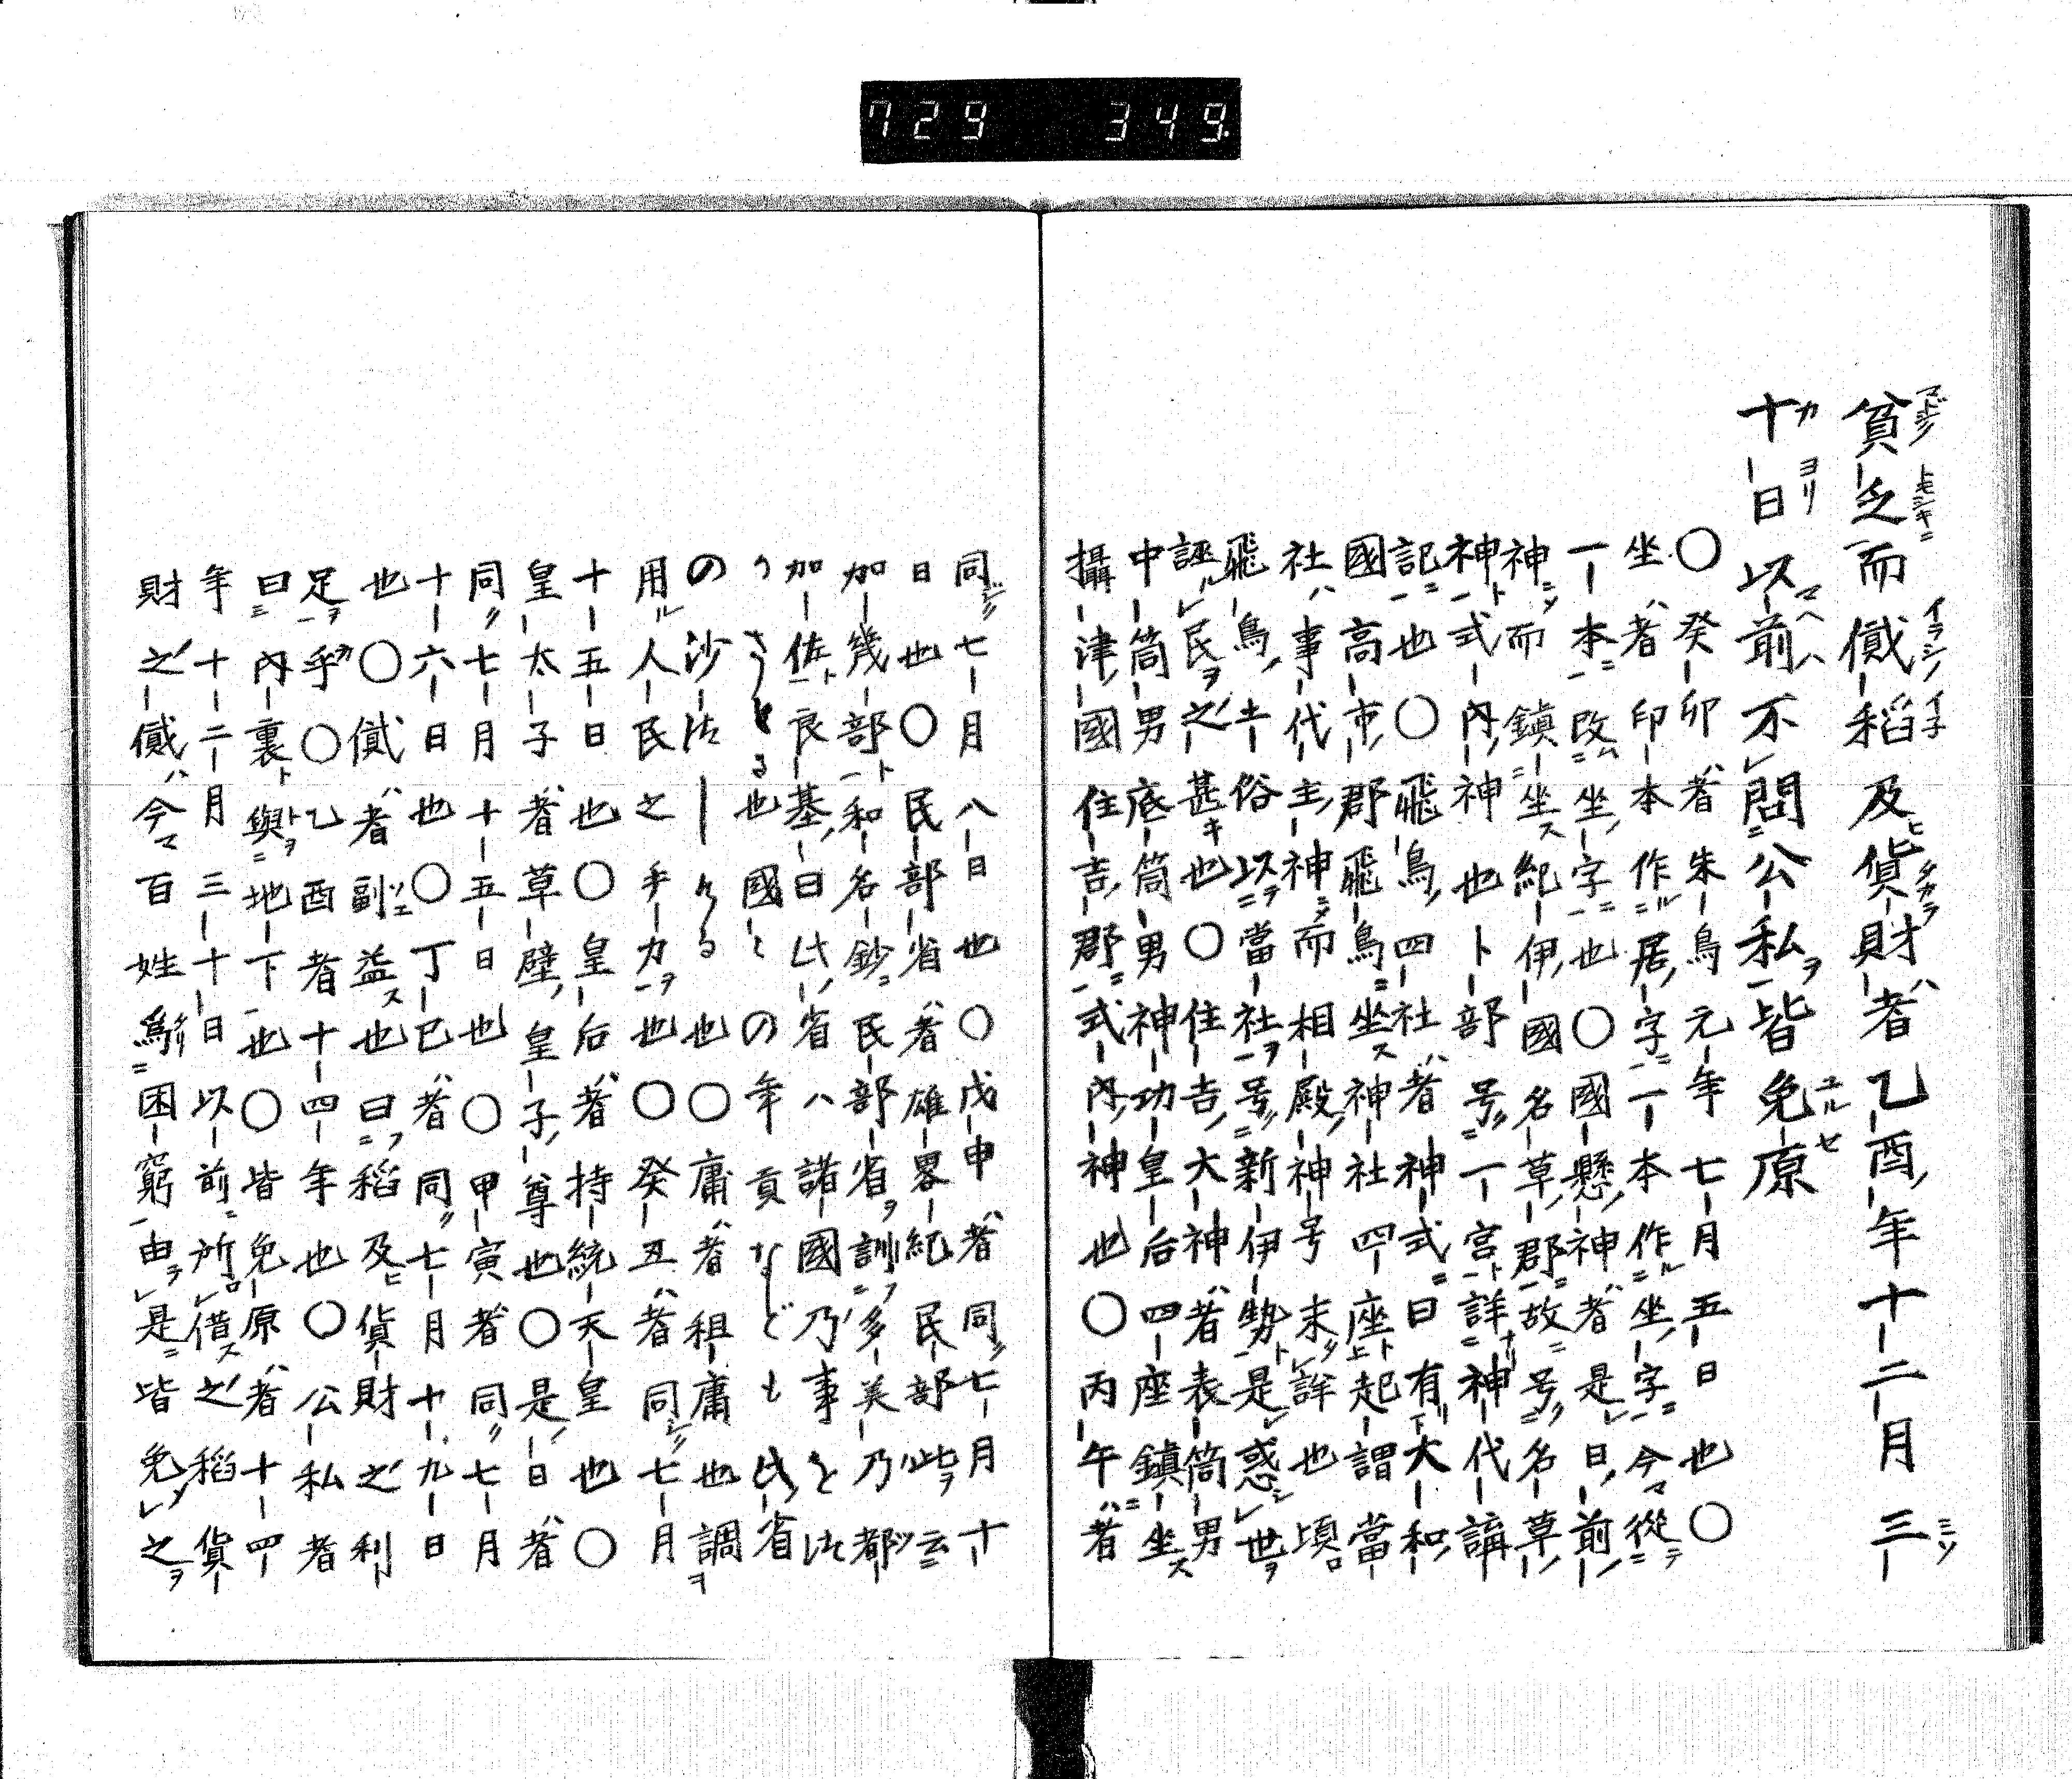 729 349
貧乏而貸稻及貨財者乙酉年十二月三
十日以前不問公私皆免原
○癸卯者朱鳥元年七月五日也○
坐者印本作居字一本作坐字今從
一本改坐字也○國懸神者是日前
神而鎭坐紀伊國名草郡故号名草
神式內神也卜部号一宮詳神代講
記也○飛鳥四社者神式曰有大和
國高市郡飛鳥坐神社四座起謂當
社事代主神而相殿神号未詳也頃
飛鳥土俗以當社号新伊勢是惑世
誣民之甚也○住吉大神者表筒男
中筒男底筒男神功皇后四座鎭坐
攝津國住吉郡式內神也○丙午者
同七月八日也○戊申者同七月十
日也○民部省者雄畧紀民部此云
加幾部和名鈔民部省訓多美乃都
加佐良基曰此省八諸國乃事を
也國との年貢なども此省
の沙汰也○庸者租庸也調
用人民之手力也○癸丑者同七月
十五日也○皇后者持統天皇也○
皇太子者草壁皇子尊也○是日者
同七月十五日也○甲寅者同七月
十六日也○丁巳者同七月十九日
也○貸者副益也曰稻及貨財之利
足乎○乙酉者十四年也○公私者
曰內裏與地下也○皆免原者十四
年十二月三十日以前所借之稻貨
財之貸今百姓爲困窮由是皆免之